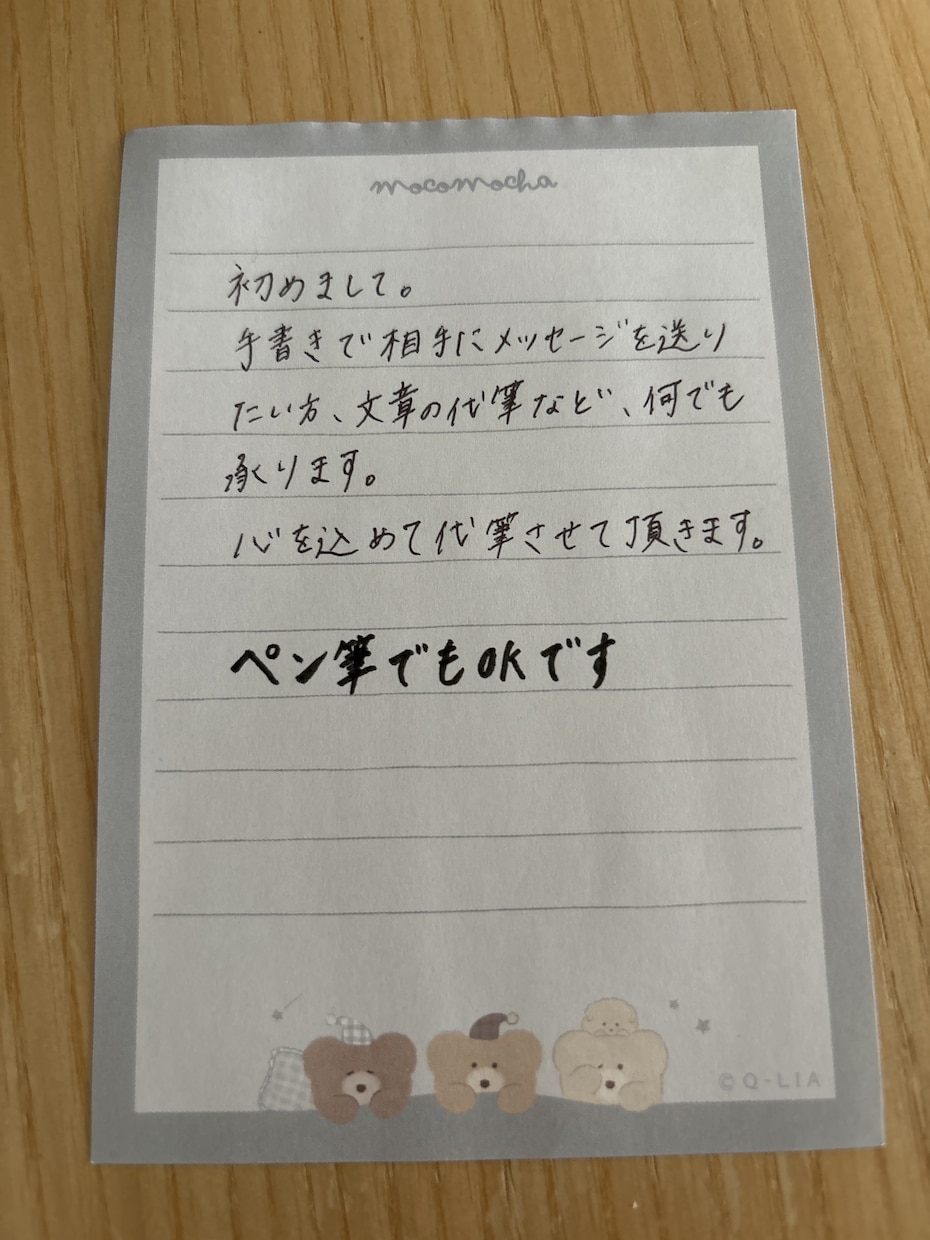 mocomocha
初めまして。
手書きで相手にメッセージを送り
たい方、文章の代筆など、何でも
承ります。
心を込めて代筆させて頂きます。
ペン筆でもOKです
©Q-LIA